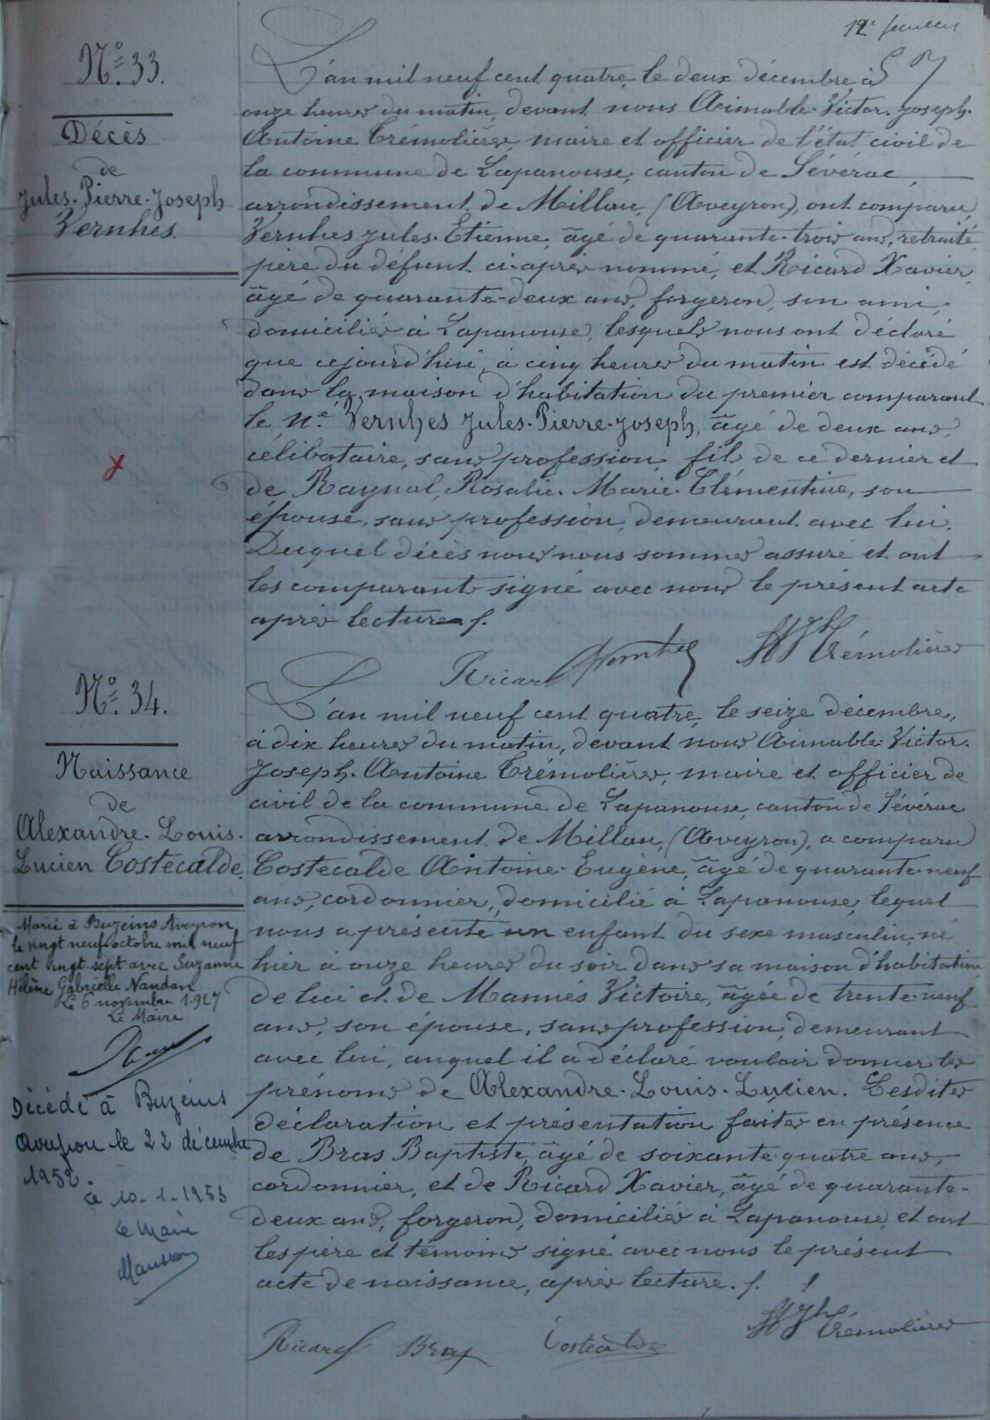 12e feuillet
N° 33.
Décès
de
Jules-Pierre-Joseph
Vernhes
L'an mil neuf cent quatre, le deux décembre à
onze heures du matin, devant nous Aimable-Victor-Joseph-
Antoine Trémolières, maire et officier de l'état civil de
la commune de Lapanouse, canton de Sévérac,
arrondissement de Millau, (Aveyron), ont comparu
Vernhes Jules-Etienne, âgé de quarante-trois ans, retraité
père du defunt ci-après nommé, et Ricard Xavier,
âgé de quarante-deux ans, forgeron, son ami,
domiciliés à Lapanouse, lesquels nous ont déclaré
que cejourd'hui, à cinq heures du matin est décédé
dans la maison d'habitation du premier comparant
le né Vernhes Jules-Pierre-Joseph, âgé de deux ans,
célibataire, sans profession, fils de ce dernier et
de Raynal, Rosalie-Marie-Clémentine, son
épouse, sans profession, demeurant avec lui.
Duquel décès nous nous sommes assuré et ont
les comparants signé avec nous le présent acte
après lecture.
Ricard Vernhes Trémolières
N° 34.
Naissance
de
Alexandre-Louis-
Lucien Costecalde.
L'an mil neuf cent quatre, le seize décembre,
à dix heures du matin, devant nous Aimable-Victor-
Joseph-Antoine Trémolières, maire et officier de
civil de la commune de Lapanouse, canton de Sévérac
arrondissement de Millau, (Aveyron), a comparu
Costecalde Antoine-Eugène, âgé de quarante-neuf
ans, cordonnier, domicilié à Lapanouse, lequel
nous a présenté un enfant du sexe masculin, né
hier à onze heures du soir dans sa maison d'habitation
de lui et de Mannés Victoire, âgée de trente-neuf
ans, son épouse, sans profession, demeurant
avec lui, auquel il a déclaré vouloir donner les
prénoms de Alexandre-Louis-Lucien. Lesdites
déclaration et présentation faites en présence
de Bras Baptiste, âgé de soixante-quatre ans,
cordonnier, et de Ricard Xavier, âgé de quarante-
deux ans, forgeron, domiciliés à Lapanouse, et ont
les père et témoins signé avec nous le présent
acte de naissance, après lecture.
Ricard Bras Costecalde Trémolières
Marié à Buzeins Aveyron
le vingt neuf octobre mil neuf
cent vingt sept avec Suzanne
Hélène Gabrielle Nandan
Le 6 novembre 1927
Le Maire
Décédé à Buzeins
Aveyron le 22 décembre
1952.
Le 10-1-1953
Le Maire